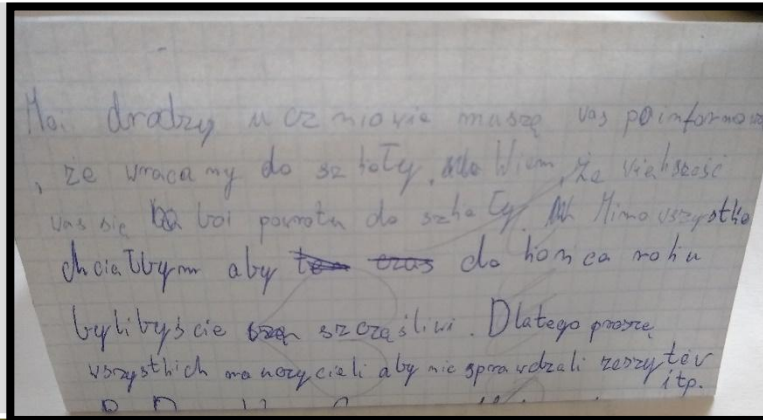 Moi drodzy uczniowie muszę vas poinformow
, że wracamy do szkoły. Wiem, że viększość
vas się boi powrotu do szkoły. Mimo vszystko
chciałbym aby do końca roku
bylibyście szczęśliwi. Dlatego proszę
vszystkich nauczycieli aby nie sprawdzali zeszytóv
itp.